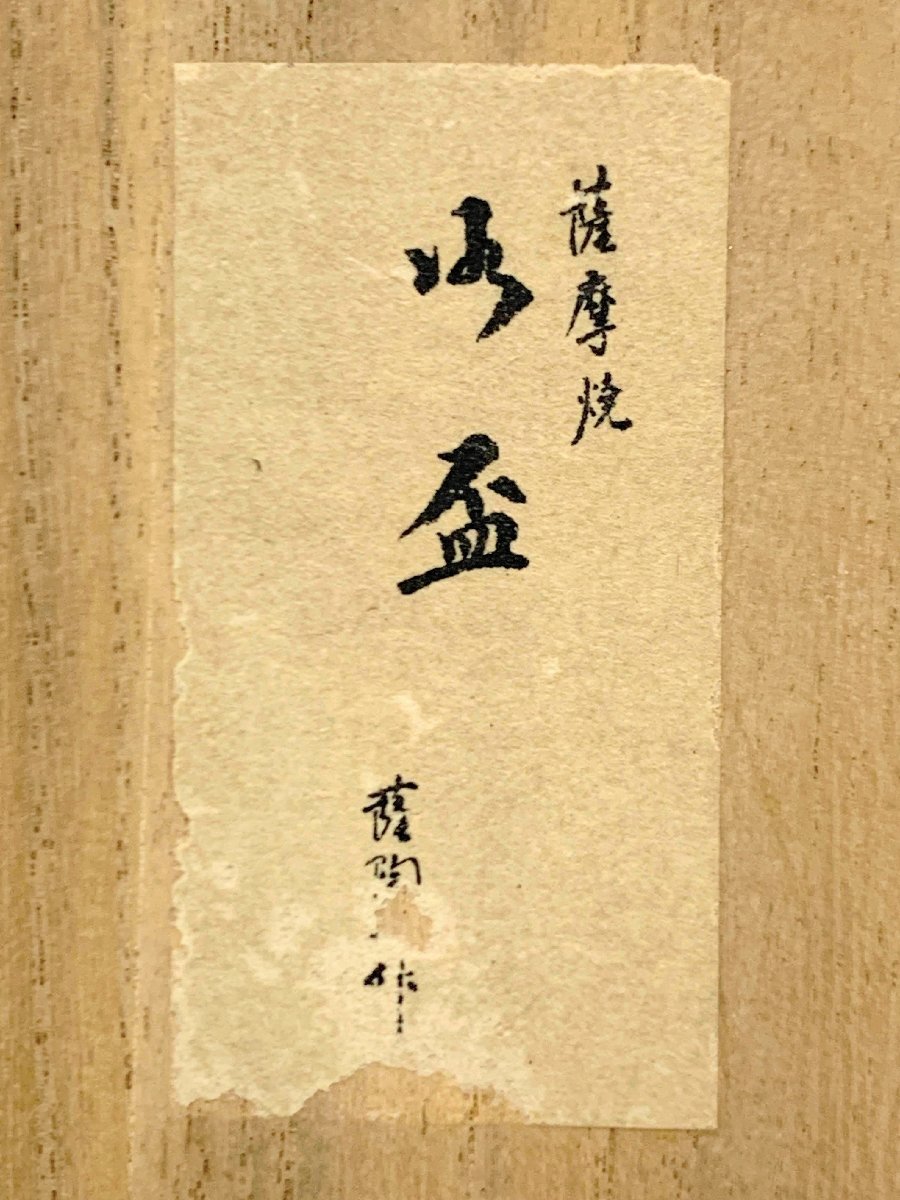 薩摩焼
酒盃
薩陶 作